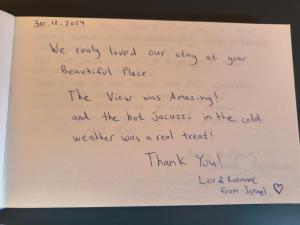 30.12.2024
We realy loved our stay at your
Beautiful Place.
The View was Amazing!
and the hot jacuzzi in the cold
weather was a real treat!
Thank You!
Lior & Rozanne
from Israel ♡